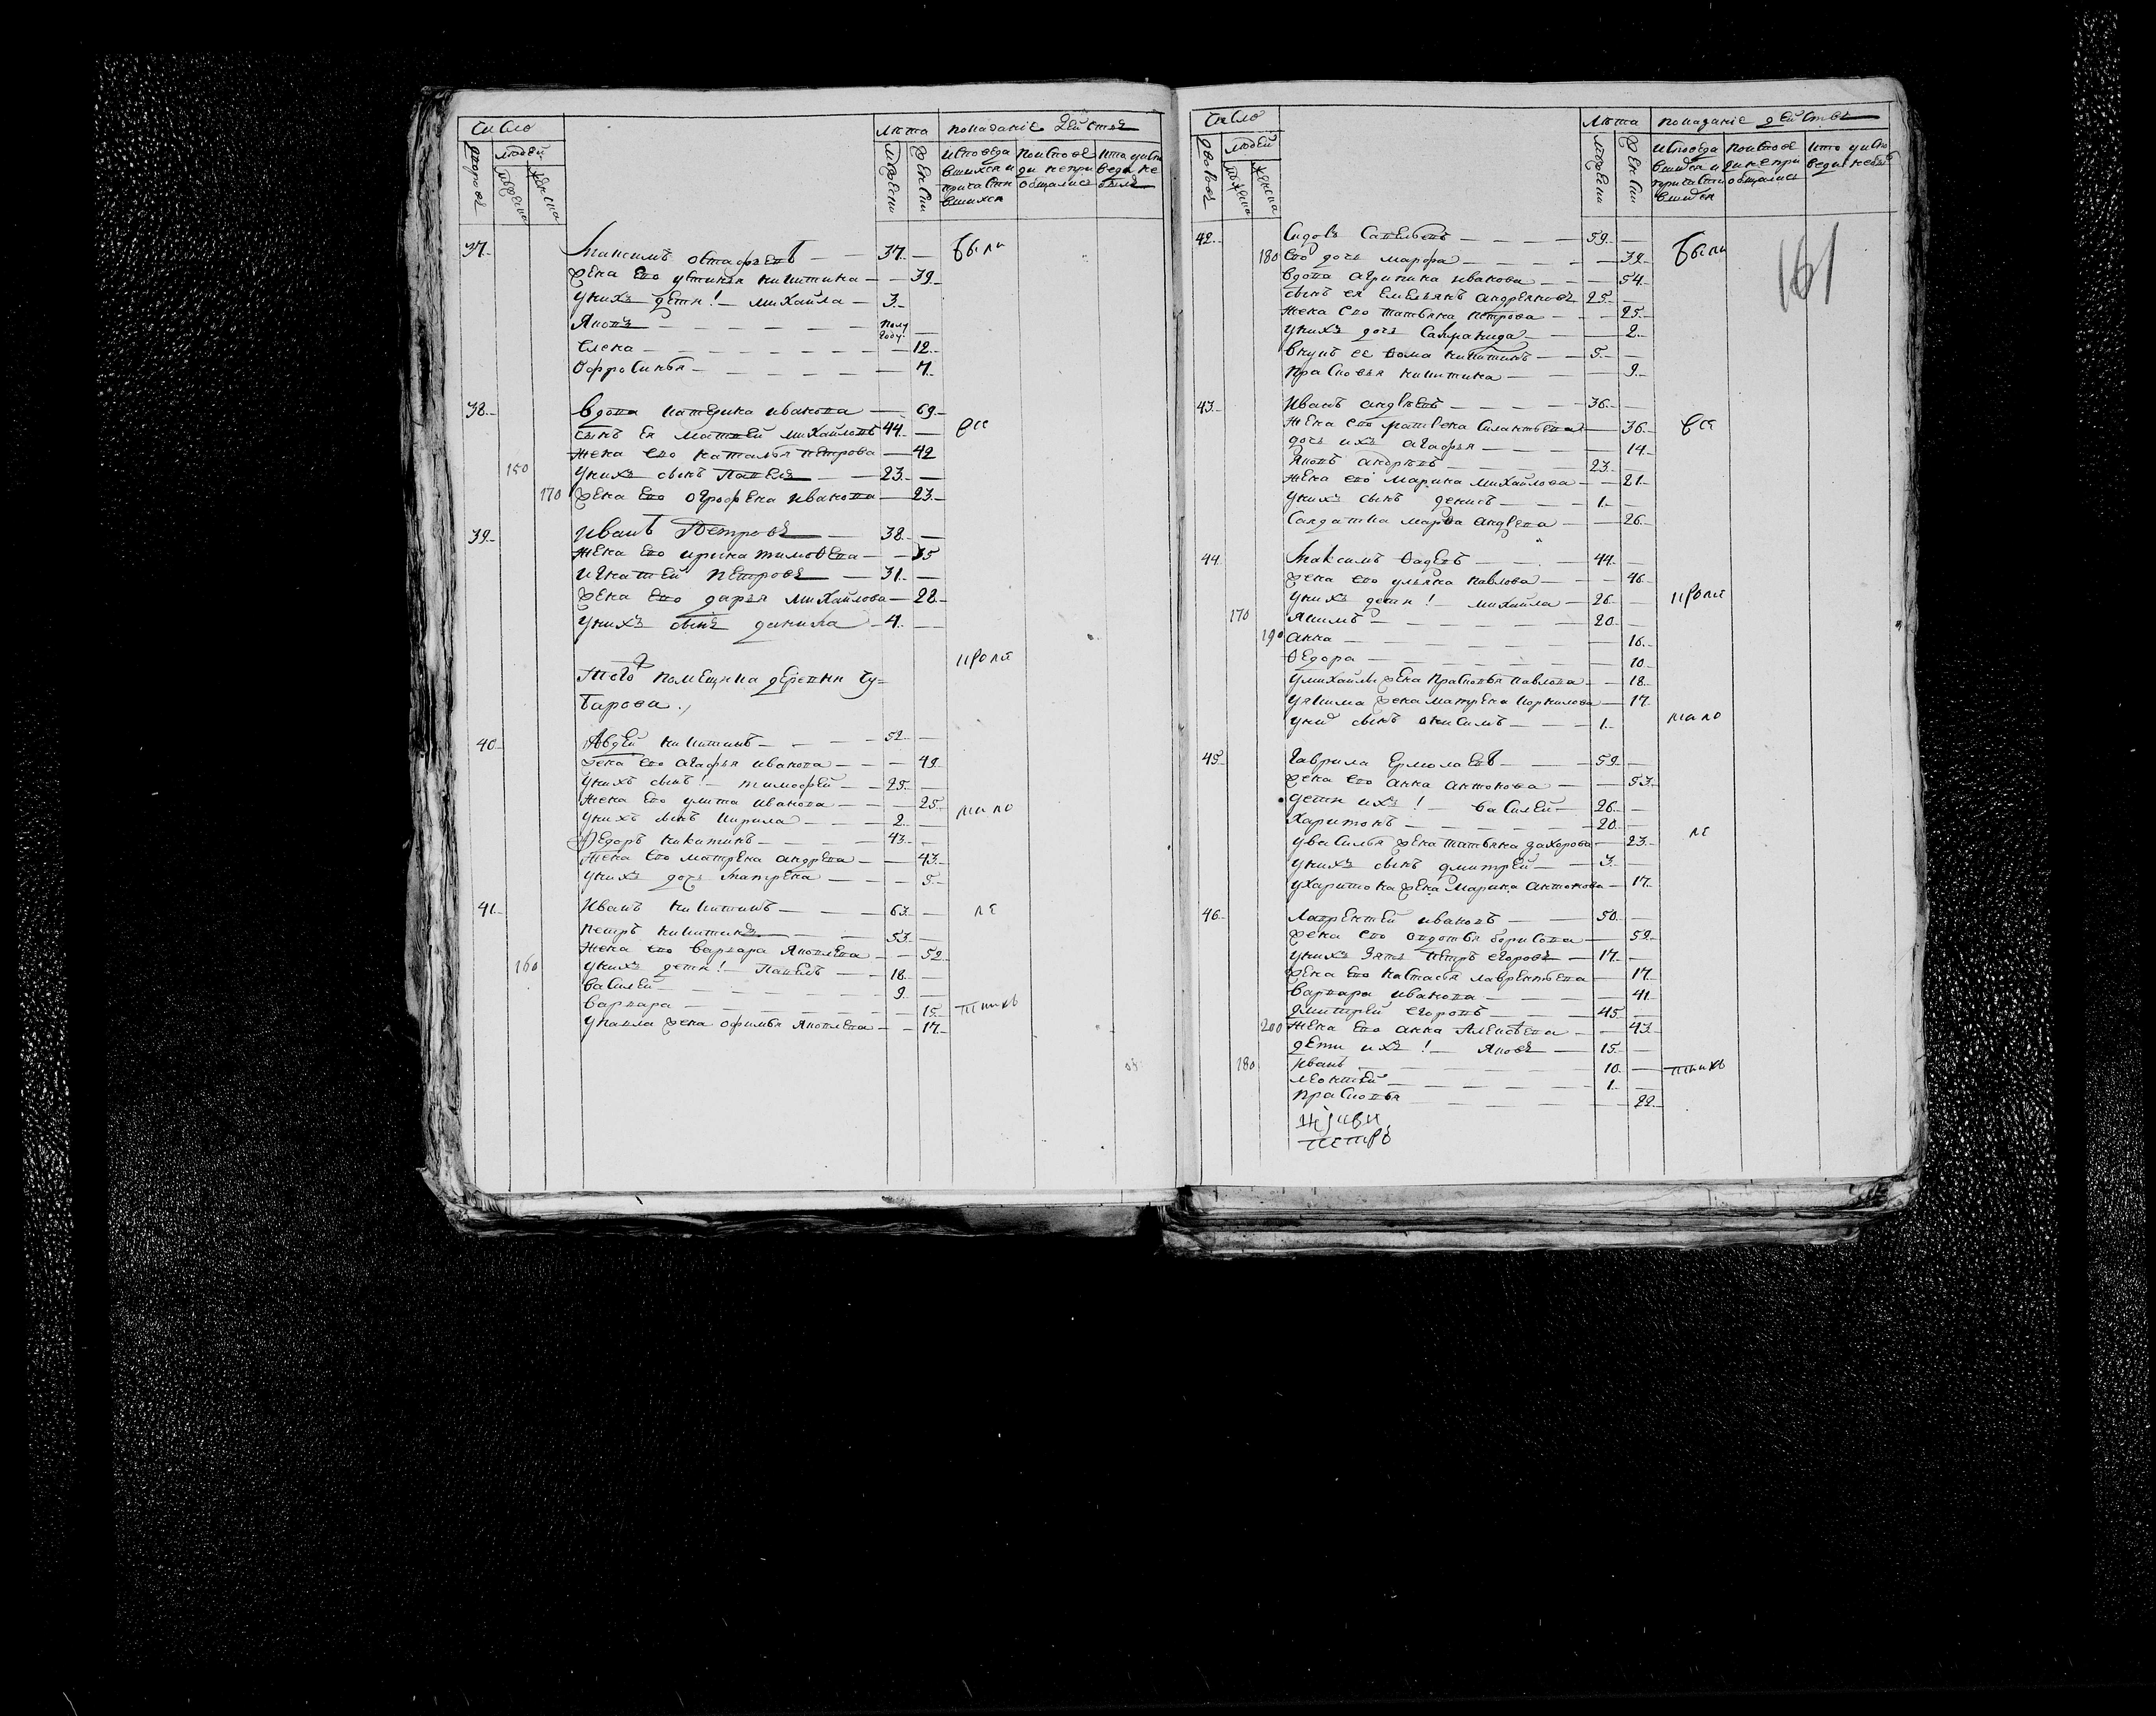 Число
Лѣта
Показаніе действъ
дворовъ
людей
мужеска
женска
мужески
женски
исповеда
вшихся и
причасти
вшихся
поиспове
ди непри
общались
кто уиспо
веди не
былъ
37. Максимъ Остафьевъ 37.
Были
жена его устинья никитина 39.
унихъ дети! михайла 3.
Яковъ полу
году.
елена 12.
Ѳфросинья 7.
38. вдова катерина иванова 69.
сынъ ея матвей михайловъ 44.
все
жена его наталья петрова 42
150 унихъ сынъ Павелъ 23.
170 жена его огрофена иванова 23.
39. иванъ Петровъ 38.
жена его ирина тимоѳева 35
игнатей петровъ 31.
жена его дарья михайлова 22.
унихъ сынъ данила 4.
кроме
того помещика деревни Бу=
барова.
40. Авдей никитинъ 52.
жена его агафья иванова 49.
унихъ сынъ! тимофей 25.
жена его улита иванова 25.
мало
унихъ сынъ кирила 2.
Ѳедоръ никитинъ 43.
жена его матрена андрева 43.
унихъ дочь матрена 5.
41. Иванъ никитинъ 63.
ле
петръ никитинъ 53.
жена его варвара яковлева 52.
160 унихъ дети! Павелъ 18.
василей 9.
варвара 15.
тнихъ
упавла жена офимья яковлева 17.
Число
Лѣта
показаніе действъ
дворовъ
людей
мужеска
женска
мужески
женски
исповеда
вшихся и
причасти
вшихся
поиспове
ди непри
общались
кто уиспо
веди небылъ
161
42. Сидоръ Савельевъ 59.
Были
180 его дочь марфа 32.
вдова агрипина иванова 54.
сынъ ея емельянъ андреяновъ 25.
жена его татьяна петрова 25.
унихъ дочь 2.
внукъ ее Ѳома никитинъ 5.
прасковья никитина 9.
43. Иванъ андреевъ 36.
жена его матрена силантьева 36.
все
дочь ихъ агафья 14.
Яковъ андревъ 23.
жена его марина михайлова 21.
унихъ сынъ денисъ 1.
Салдатка марѳа андрева 26.
44. Максимъ Ѳадеевъ 44.
жена его ульяна павлова 46.
унихъ дети! михайла 26.
кроме
170 Якимъ 20.
190 анна 16.
Ѳедора 10.
умихайлы жена прасковья павлова 18.
уякима жена матрена корнилова 17.
унихъ сынъ онисимъ 1.
мало
45. Гаврила Ермолаевъ 59.
жена его анна антонова 53.
дети ихъ! василей 26.
Харитонъ 20.
ле
увасилья жена татьяна захарова 23.
унихъ сынъ дмитрей 3.
ухаритона жена марина антонова 17.
46. Лаврентей ивановъ 50.
жена его авдотья борисова 52.
унихъ зять петръ егоровъ 17.
жена его настасья лаврентьева 17.
варвара иванова 41.
дмитрей егоровъ 45.
200 жена его анна Алексѣева 43.
дети ихъ! Яковъ 15.
180 Иванъ 10.
тнихъ
леонтей 1.
прасковья 22.
петръ